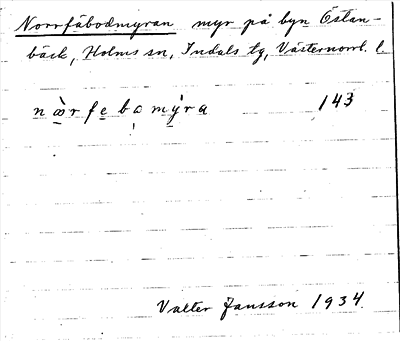 Norrfäbodmyran myr på byn Östan-
bäck, Holms sn, Indals tg, Västernorrl. l.
nœ̀rfebamýra 143
Valter Jansson 1934.